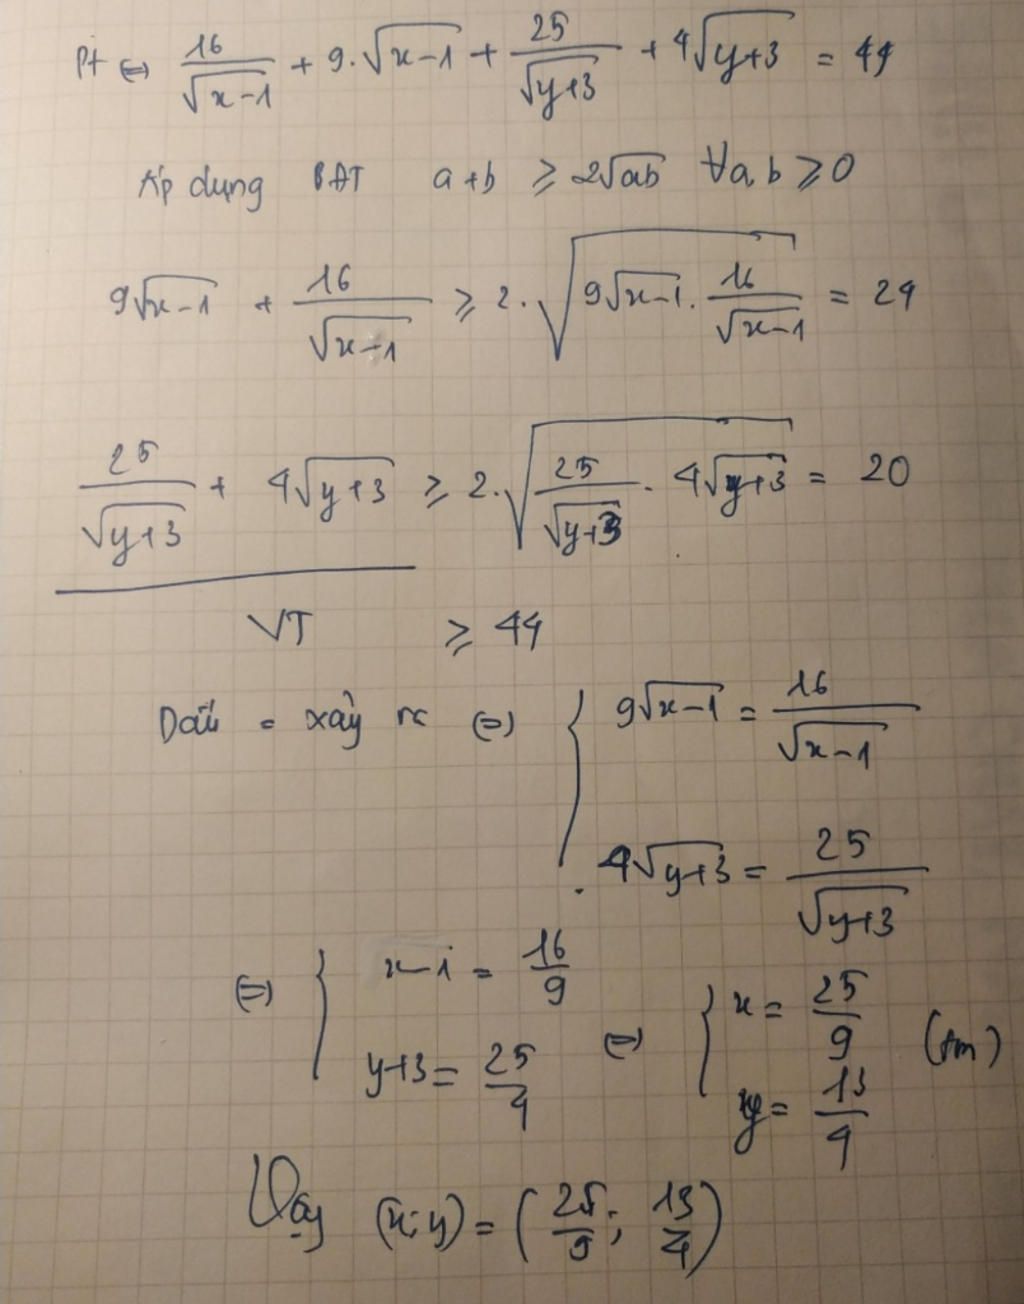 Pt ⇔ 16/√(x-1) + 9.√(x-1) + 25/√(y+3) + 4√(y+3) = 44
Áp dụng BĐT a+b ≥ 2√ab ∀a,b ≥ 0
9√(x-1) + 16/√(x-1) ≥ 2.√(9√(x-1) . 16/√(x-1)) = 24
25/√(y+3) + 4√(y+3) ≥ 2.√(25/√(y+3) . 4√(y+3)) = 20
VT ≥ 44
Dấu = xảy ra ⇔ { 9√(x-1) = 16/√(x-1)
4√(y+3) = 25/√(y+3)
⇔ { x-1 = 16/9
y+3 = 25/4
⇔ { x = 25/9
y = 13/4
(tm)
Vậy (x;y) = (25/9; 13/4)